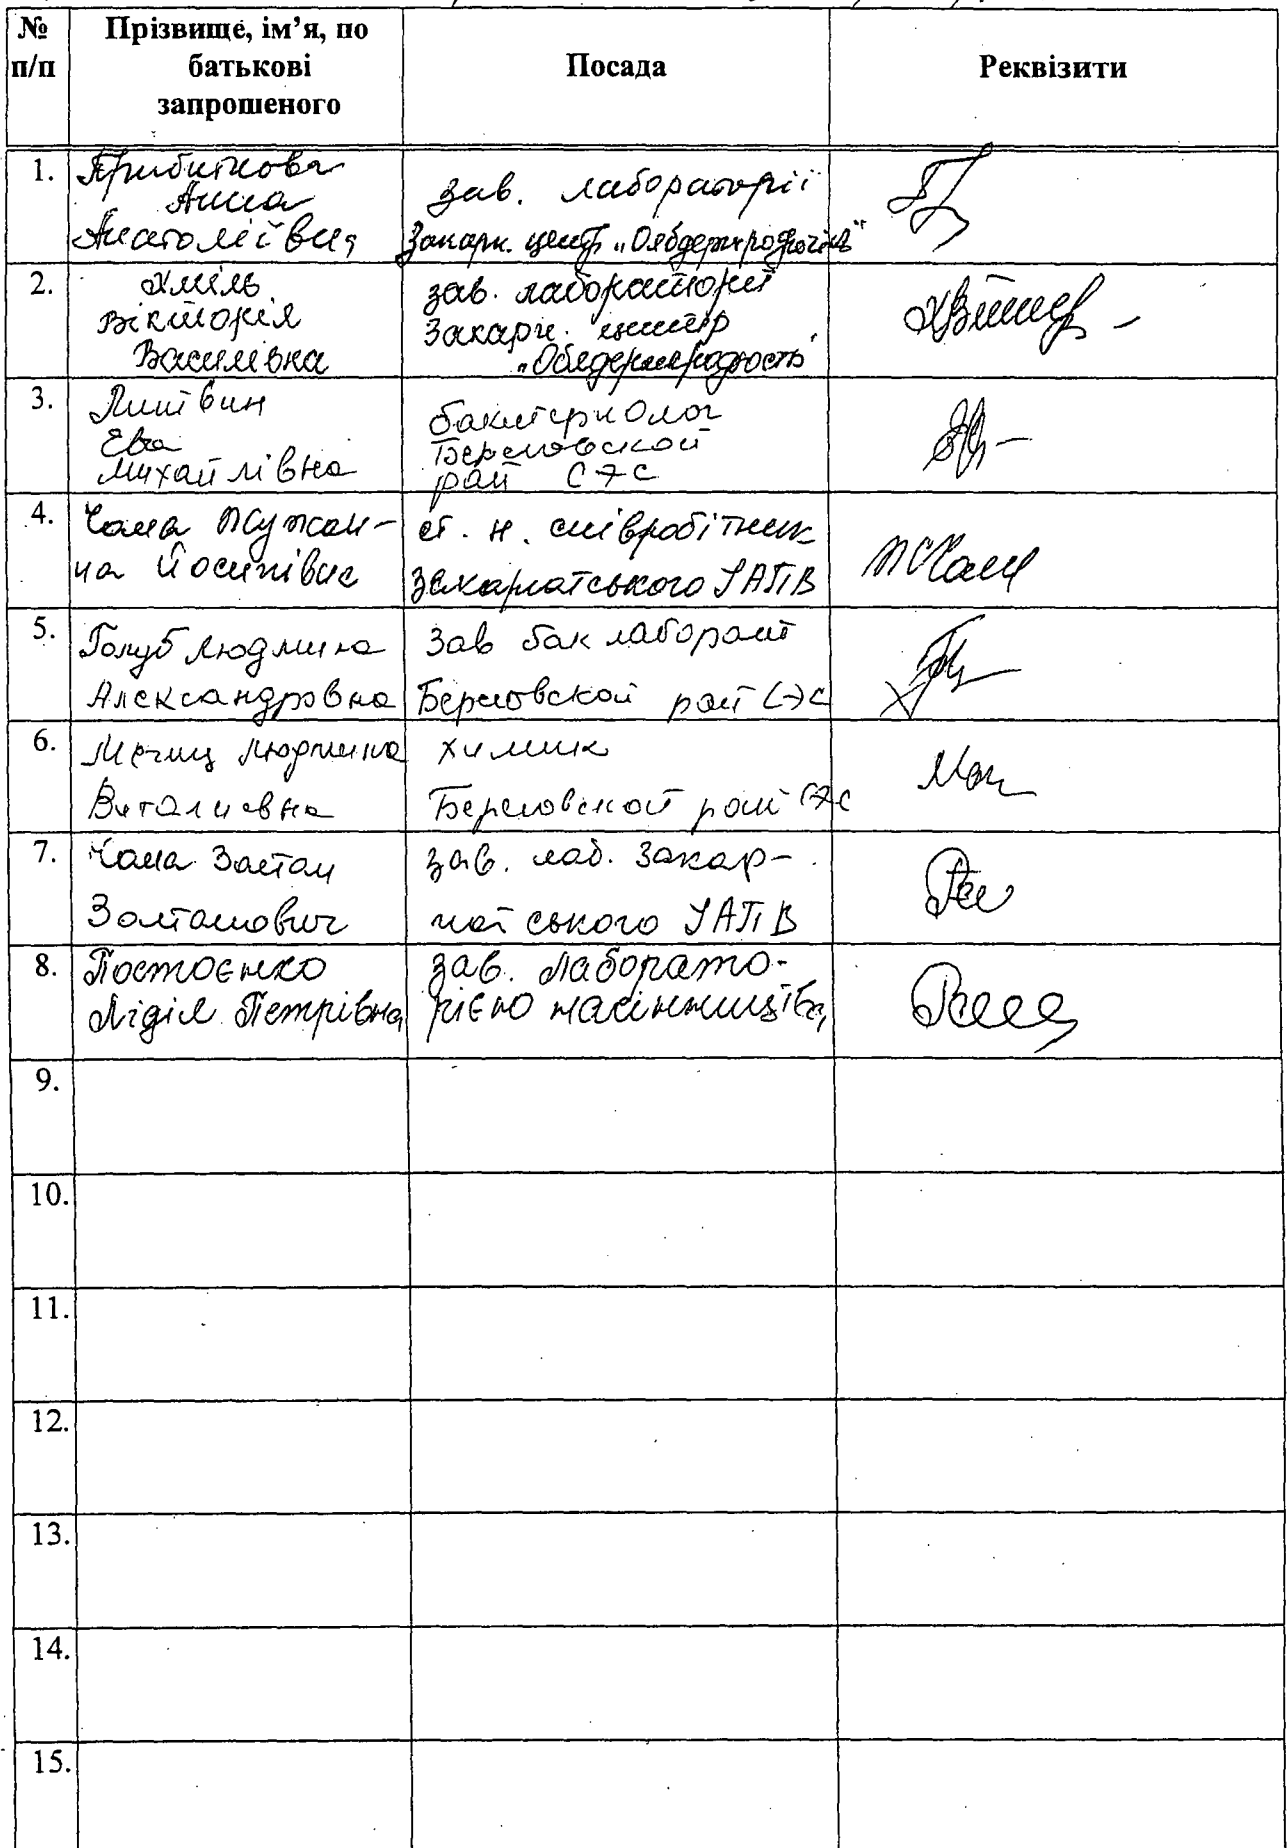 № п/п
Прізвище, ім’я, по батькові запрошеного
Посада
Реквізити
1.
Прибиткова
Анна
Анатоліївна
зав. лабораторії
Закарп. центр „Облдержродючість“
2.
Хміль
Вікторія
Василівна
зав. лабораторії
Закарп. центр
„Облдержродючість
3.
Литвин
Ева
Михайлівна
бактериолог
Береговской
рай СЭС
4.
Чома Жужан-
на Йосипівна
ст. н. співробітник
Закарпатського ІАПВ
5.
Голуб Людмила
Александровна
Зав бак лаборат
Береговской рай СЭС
6.
Людмила
Виталиевна
химик
Береговской рай СЭС
7.
Чома Золтан
Золтанович
зав. лаб. Закар-
патського ІАПВ
8.
Постоєнко
Лідія Петрівна
зав. лаборато-
рією насінництва
9.
10.
11.
12.
13.
14.
15.